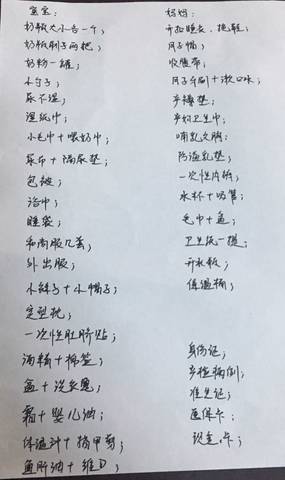 宝宝：
奶瓶大小各一个；
奶瓶刷子两把；
奶粉一罐；
小勺子；
尿不湿；
湿纸巾；
小毛巾+喂奶巾；
尿布+隔尿垫；
包被；
浴巾；
睡袋；
和尚服几套；
外出服；
小袜子+小帽子；
定型枕；
一次性肚脐贴；
酒精+棉签；
盆+洗衣皂；
霜+婴儿油；
体温计+指甲剪；
鱼肝油+维D；
妈妈：
开扣睡衣、拖鞋；
月子帽；
收腹带；
月子牙刷+漱口水；
产褥垫；
产妇卫生巾；
哺乳文胸；
防溢乳垫；
一次性内裤；
水杯+吸管；
毛巾+盆；
卫生纸一提；
开水瓶；
保温桶；
身份证；
产检病例；
准生证；
医保卡；
现金，卡；